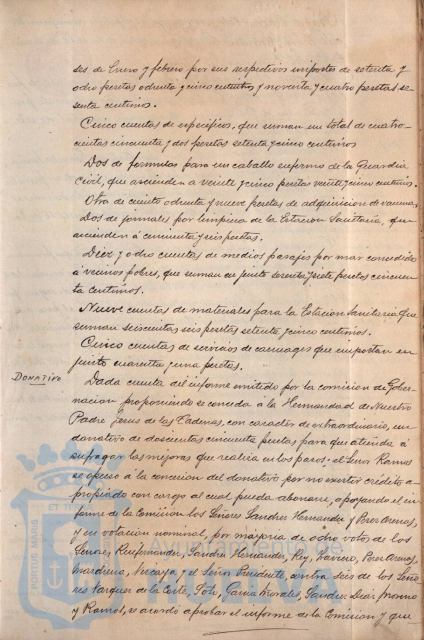 ses de Enero y febrero por sus respectivos importes de setenta y
ocho pesetas ochenta y cinco centimos y noventa y cuatro pesetas se-
senta centimos.
Cinco cuentas de especificos, que suman un total de cuatro-
cientas cincuenta y dos pesetas setenta y cinco centimos
Dos de formulas para un caballo enfermo de la Guardia
Civil, que ascienden a veinte y cinco pesetas veinte y cinco centimos.
Otra de ciento ochenta y nueve pesetas de adquisicion de vacunas,
Dos de jornales por limpieza de la Estacion Sanitaria, que
ascienden á cincuenta y seis pesetas.
Diez y ocho cuentas de medios pasajes por mar concedidos
á vecinos pobres, que suman en junto setenta y siete pesetas cincuen-
ta centimos.
Nueve cuentas de materiales para la Estacion Sanitaria que
suman seiscientas seis pesetas setenta y cinco centimos.
Cinco cuentas de servicios de carruages que importan en
junto cuarenta y una pesetas.
DONATIVO
Dada cuenta del informe emitido por la comision de Gober-
nacion proponiendo se conceda á la Hermandad de Nuestro
Padre Jesus de las Cadenas, con caracter de extraordinario, un
donativo de doscientas cincuenta pesetas para que atienda á
sufragar las mejoras que realiza en los pasos; el Señor Ramos
se opuso á la concesion del donativo por no existir credito a-
propiado con cargo al cual pueda abonarse, apoyando el in-
forme de la Comision los Señores Sanchez Hernandez y Perez Arenas,
y en votacion nominal, por mayoria de ocho votos de los
Señores Sanchez Hernandez, Rey, Perez Arenas,
y el Señor Presidente, contra seis de los Seño-
res Vazquez de la Corte, Garcia Morales, Sanchez Diaz, Moreno
y Ramos, se acordó aprobar el informe de la Comision y que
PORTUS MARIS ET TERRAE